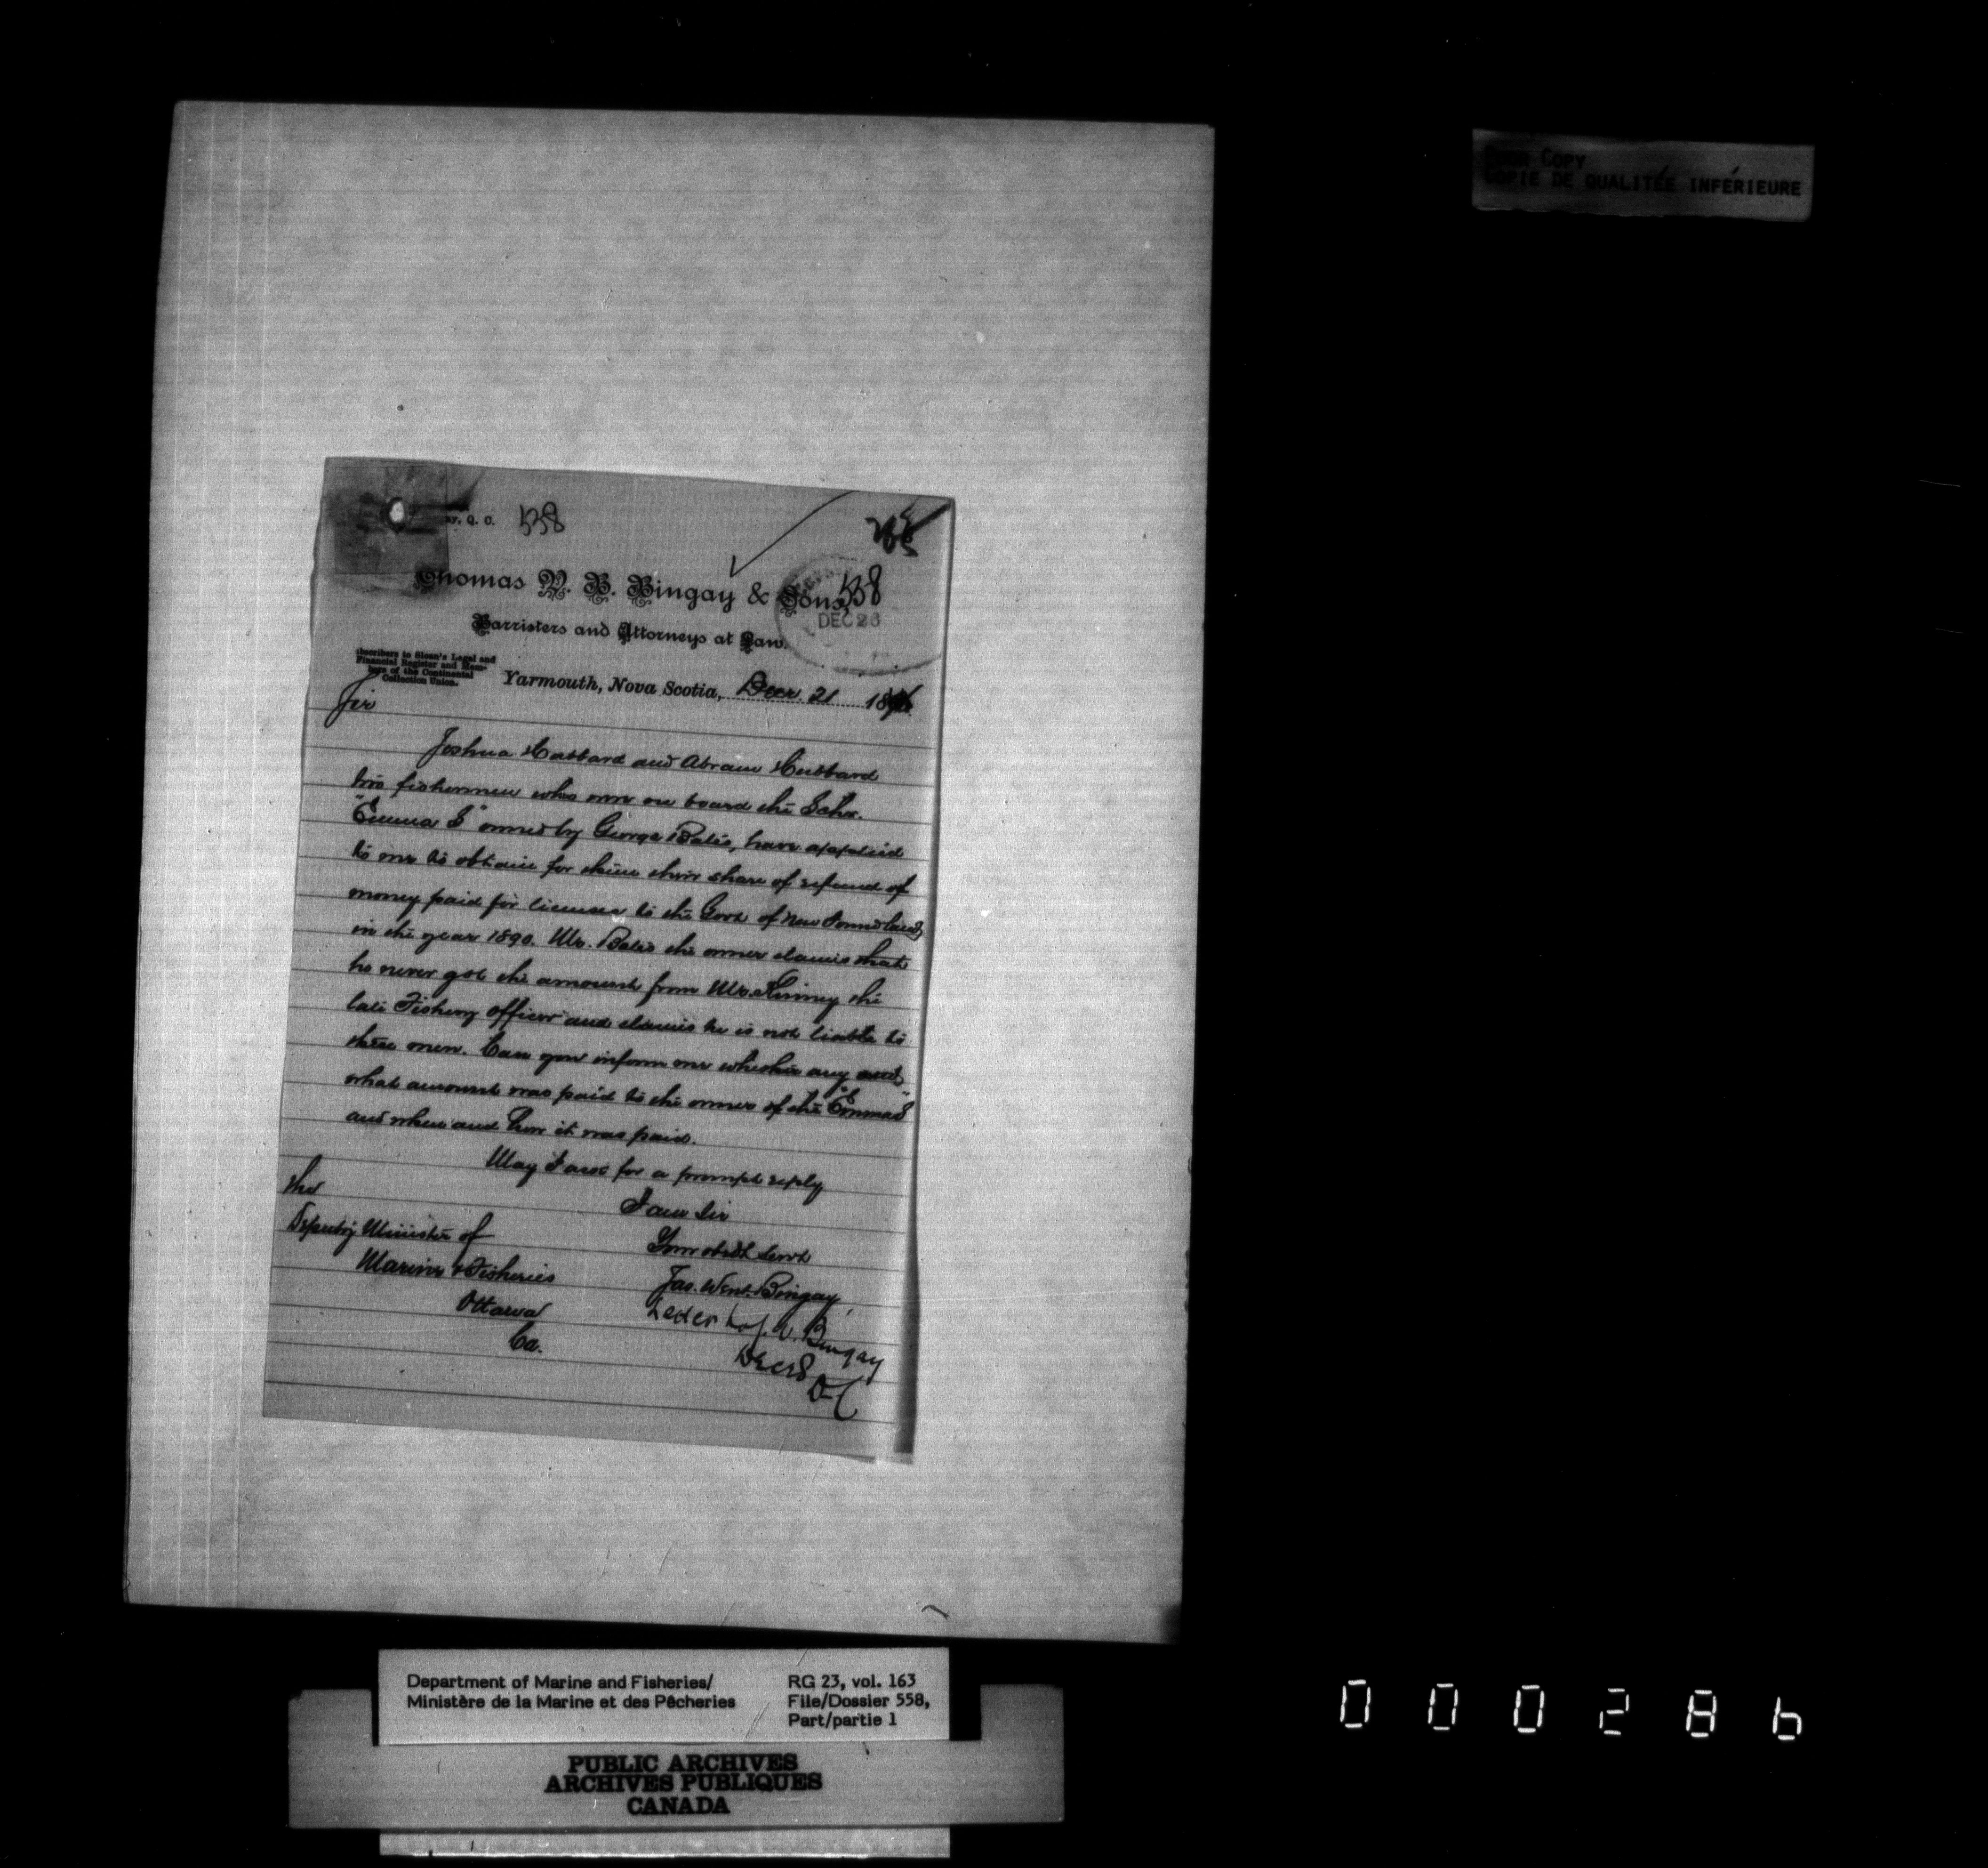 POOR COPY
COPIE DE QUALITÉE INFÉRIEURE
Q. C. 558
558
Thomas V. B. Bingay & Sons,
DEC 26
Barristers and Attorneys at Law.
Subscribers to Sloan's Legal and
Financial Register and Mem-
bers of the Continental
Collection Union.
Yarmouth, Nova Scotia, Decr. 21 189
Sir
Joshua Hubbard and Abram Hubbard
two fishermen who were on board the Schr.
"Emma S" owned by George Bates, have applied
to me to obtain for them their share of refund of
money paid for licenses to the Govt of New Foundland,
in the year 1890. Mr. Bates the owner claims that
he never got the amount from Mr. Kinney the
late Fishery Officer and claims he is not liable to
these men. Can you inform me whether any and
what amount was paid to the owner of the "Emma S"
and when and how it was paid.
May I ask for a prompt reply
I am Sir
Your obedt Servt
Jas. Went. Bingay
The
Deputy Minister of
Marine & Fisheries
Ottawa
Ca.
Letter to J. W. Bingay
Dec 28
Department of Marine and Fisheries/
Ministère de la Marine et des Pêcheries
RG 23, vol. 163
File/Dossier 558,
Part/partie 1
PUBLIC ARCHIVES
ARCHIVES PUBLIQUES
CANADA
000286